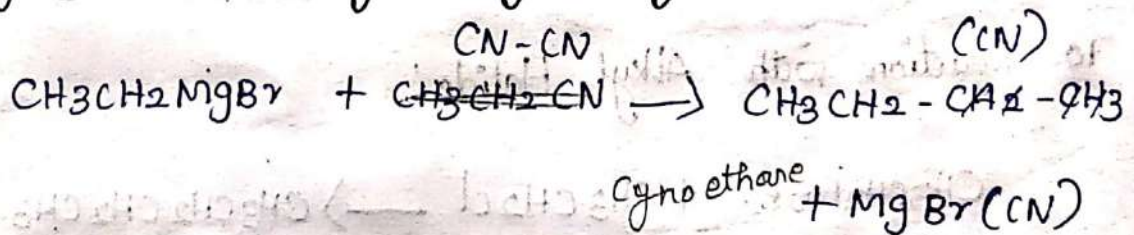 CN-CN (CN)
CH3CH2MgBr + CH3CH2-CN → CH3CH2-CH2-CH3
Cynoethane + MgBr(CN)